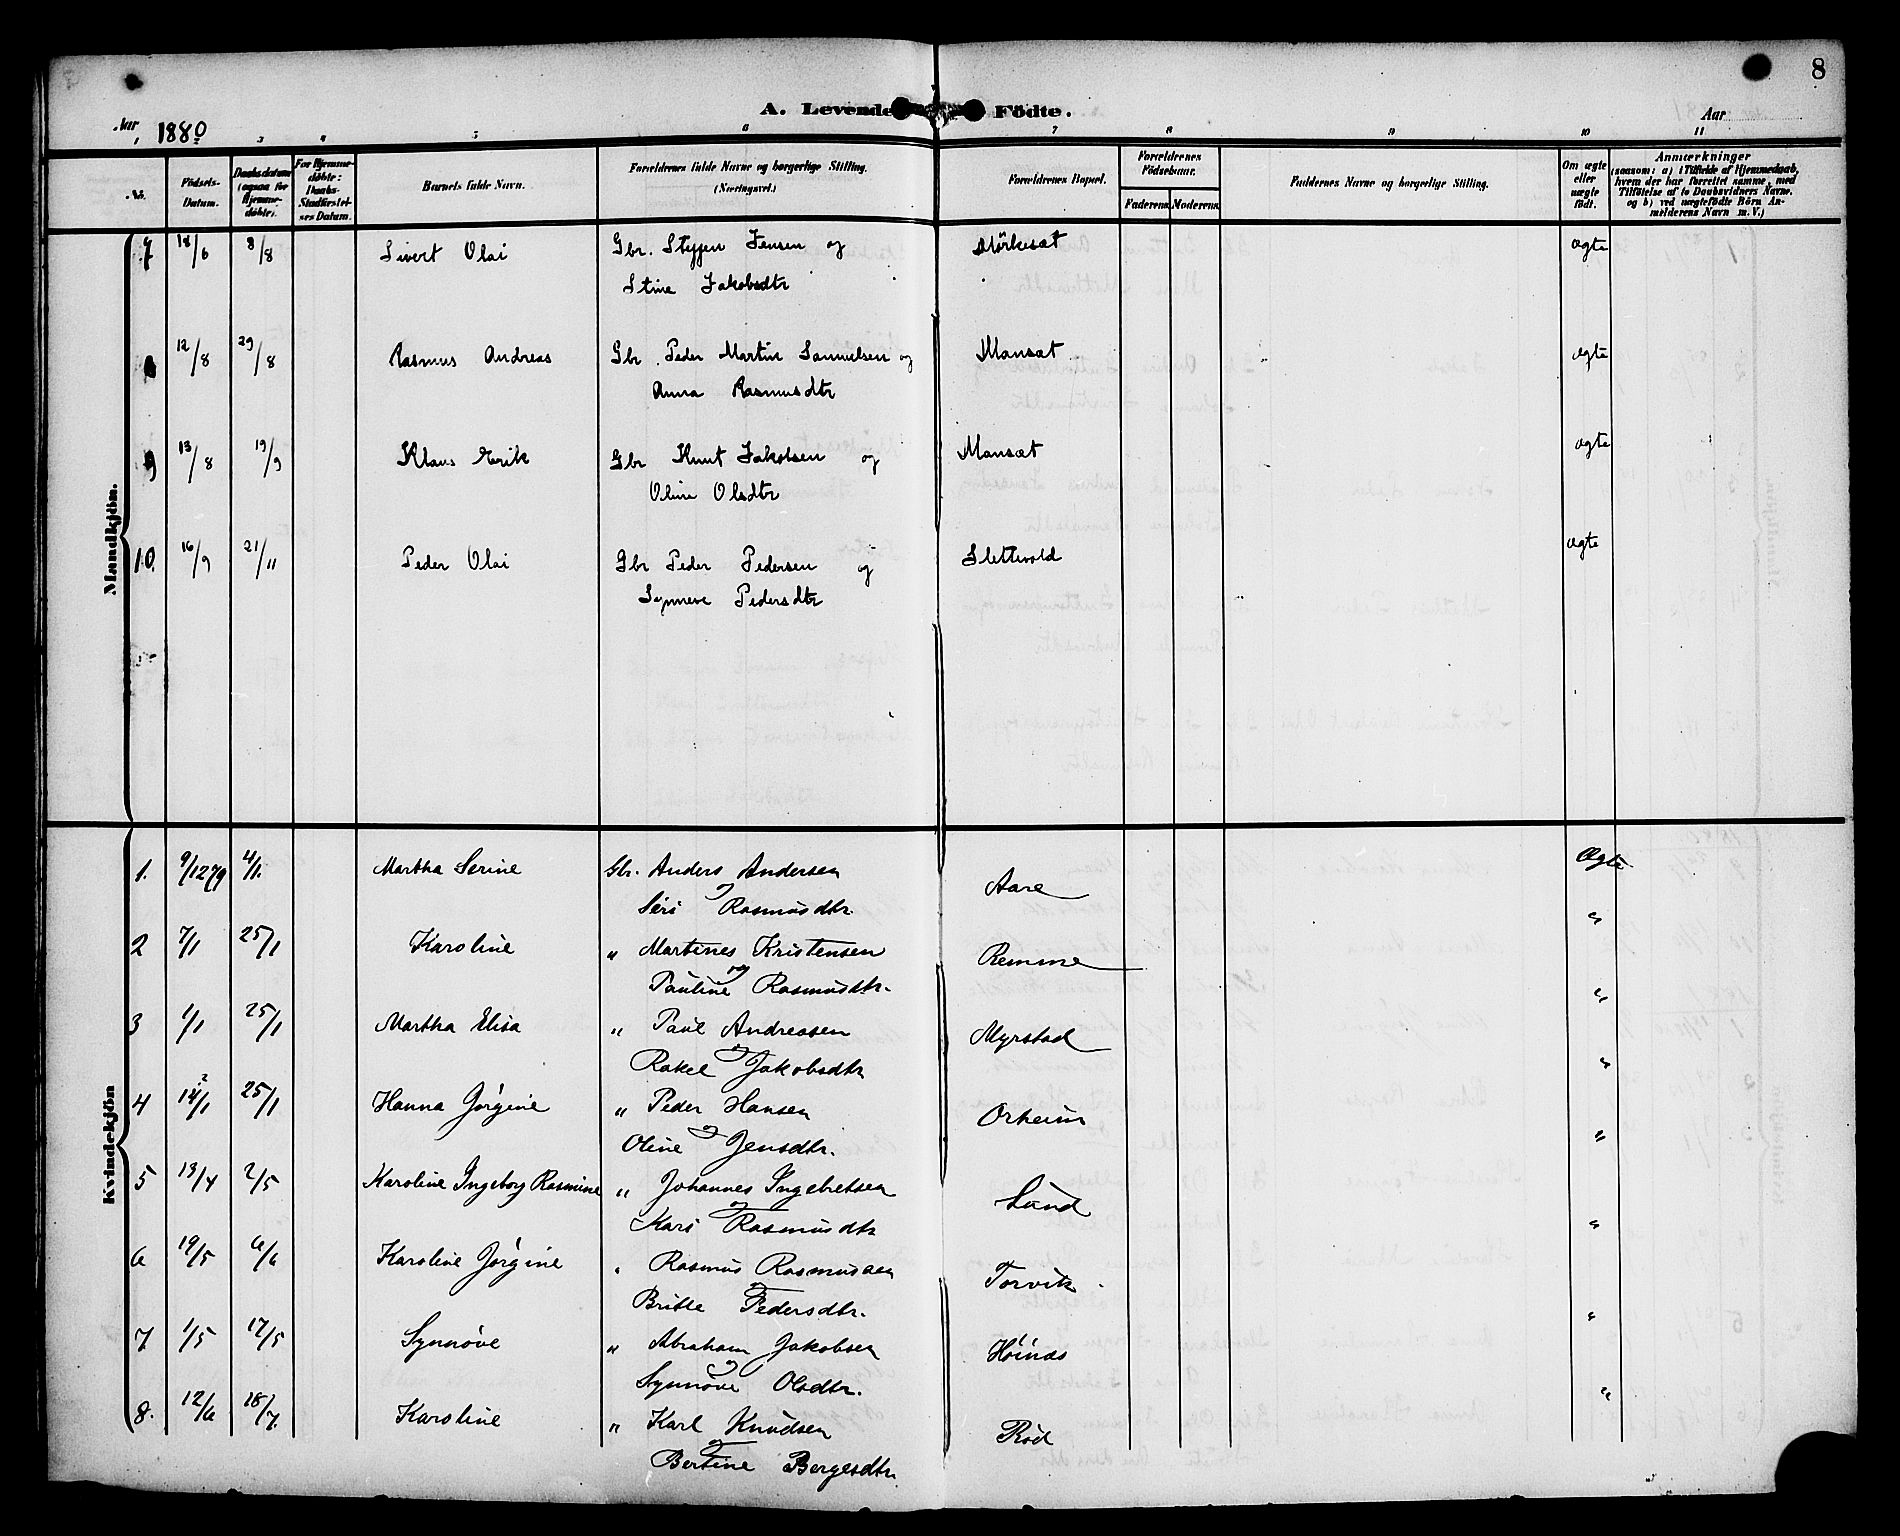 8
A. Levende Födte.
Aar 1880
Aar
1 3 4 5 6 7 8 9 10 11
No. Födsels-Datum. Daabsdatum (ogsaa for Hjemmedöbte). For Hjemmedöbte: Daabs-Stadfæstelses Datum. Barnets fulde Navn. Forældrenes fulde Navne og borgerlige Stilling. (Næringsvei.) Forældrenes Bopæl. Forældrenes Födselsaar. Faderens Moderens Faddernes Navne og borgerlige Stilling. Om ægte eller uægte födt. Anmærkninger (saasom: a) i Tilfælde af Hjemmedaab, hvem der har forrettet samme, med Tilföielse af to Daabsvidners Navne. og b) ved uægtefödte Börn Anmelderens Navn m. V.)
Mandkjön.
7 18/6 8/8 Sivert Olai Gbr. Steffen Jensen og Mörkesæt Ægte
Stine Jakobsdtr
8 12/8 29/8 Rasmus Andreas Gbr. Peder Martin Samuelsen og Mansæt Ægte
Anna Rasmusdtr
9 13/8 19/9 Klaus Erik Gbr Knut Jakobsen og Mansæt Ægte
Oline Olsdtr
10. 16/9 21/11 Peder Olai Gbr Peder Pedersen og Slettevold Ægte
Synneve Pedersdtr
Kvindekjön
1. 9/12 79 4/1. Martha Serine Gbr. Anders Andersen Aare Ægte
og Siri Rasmusdtr.
2 7/1 25/1 Karoline " Martines Kristensen Remme "
og Pauline Rasmusdtr.
3 1/1 25/1 Martha Elisa " Paul Andreasen Myrstad "
og Rakel Jakobsdtr
4 25/1 Hanna Jørgine " Peder Hansen Orheim "
og Oline Jensdtr.
5 13/4 2/5 Karoline Ingeborg Rasmine " Johannes Ingebretsen Sund "
og Kari Rasmusdtr
6 19/5 6/6 Karoline Jørgine " Rasmus Rasmussen Torvik "
og Britte Pedersdtr.
7 1/5 17/5 Synnøve " Abraham Jakobsen Høinæs "
og Synnøve Olsdtr.
8. 12/6 18/7. Karoline " Karl Knudsen Rød "
og Bertine Bergesdtr